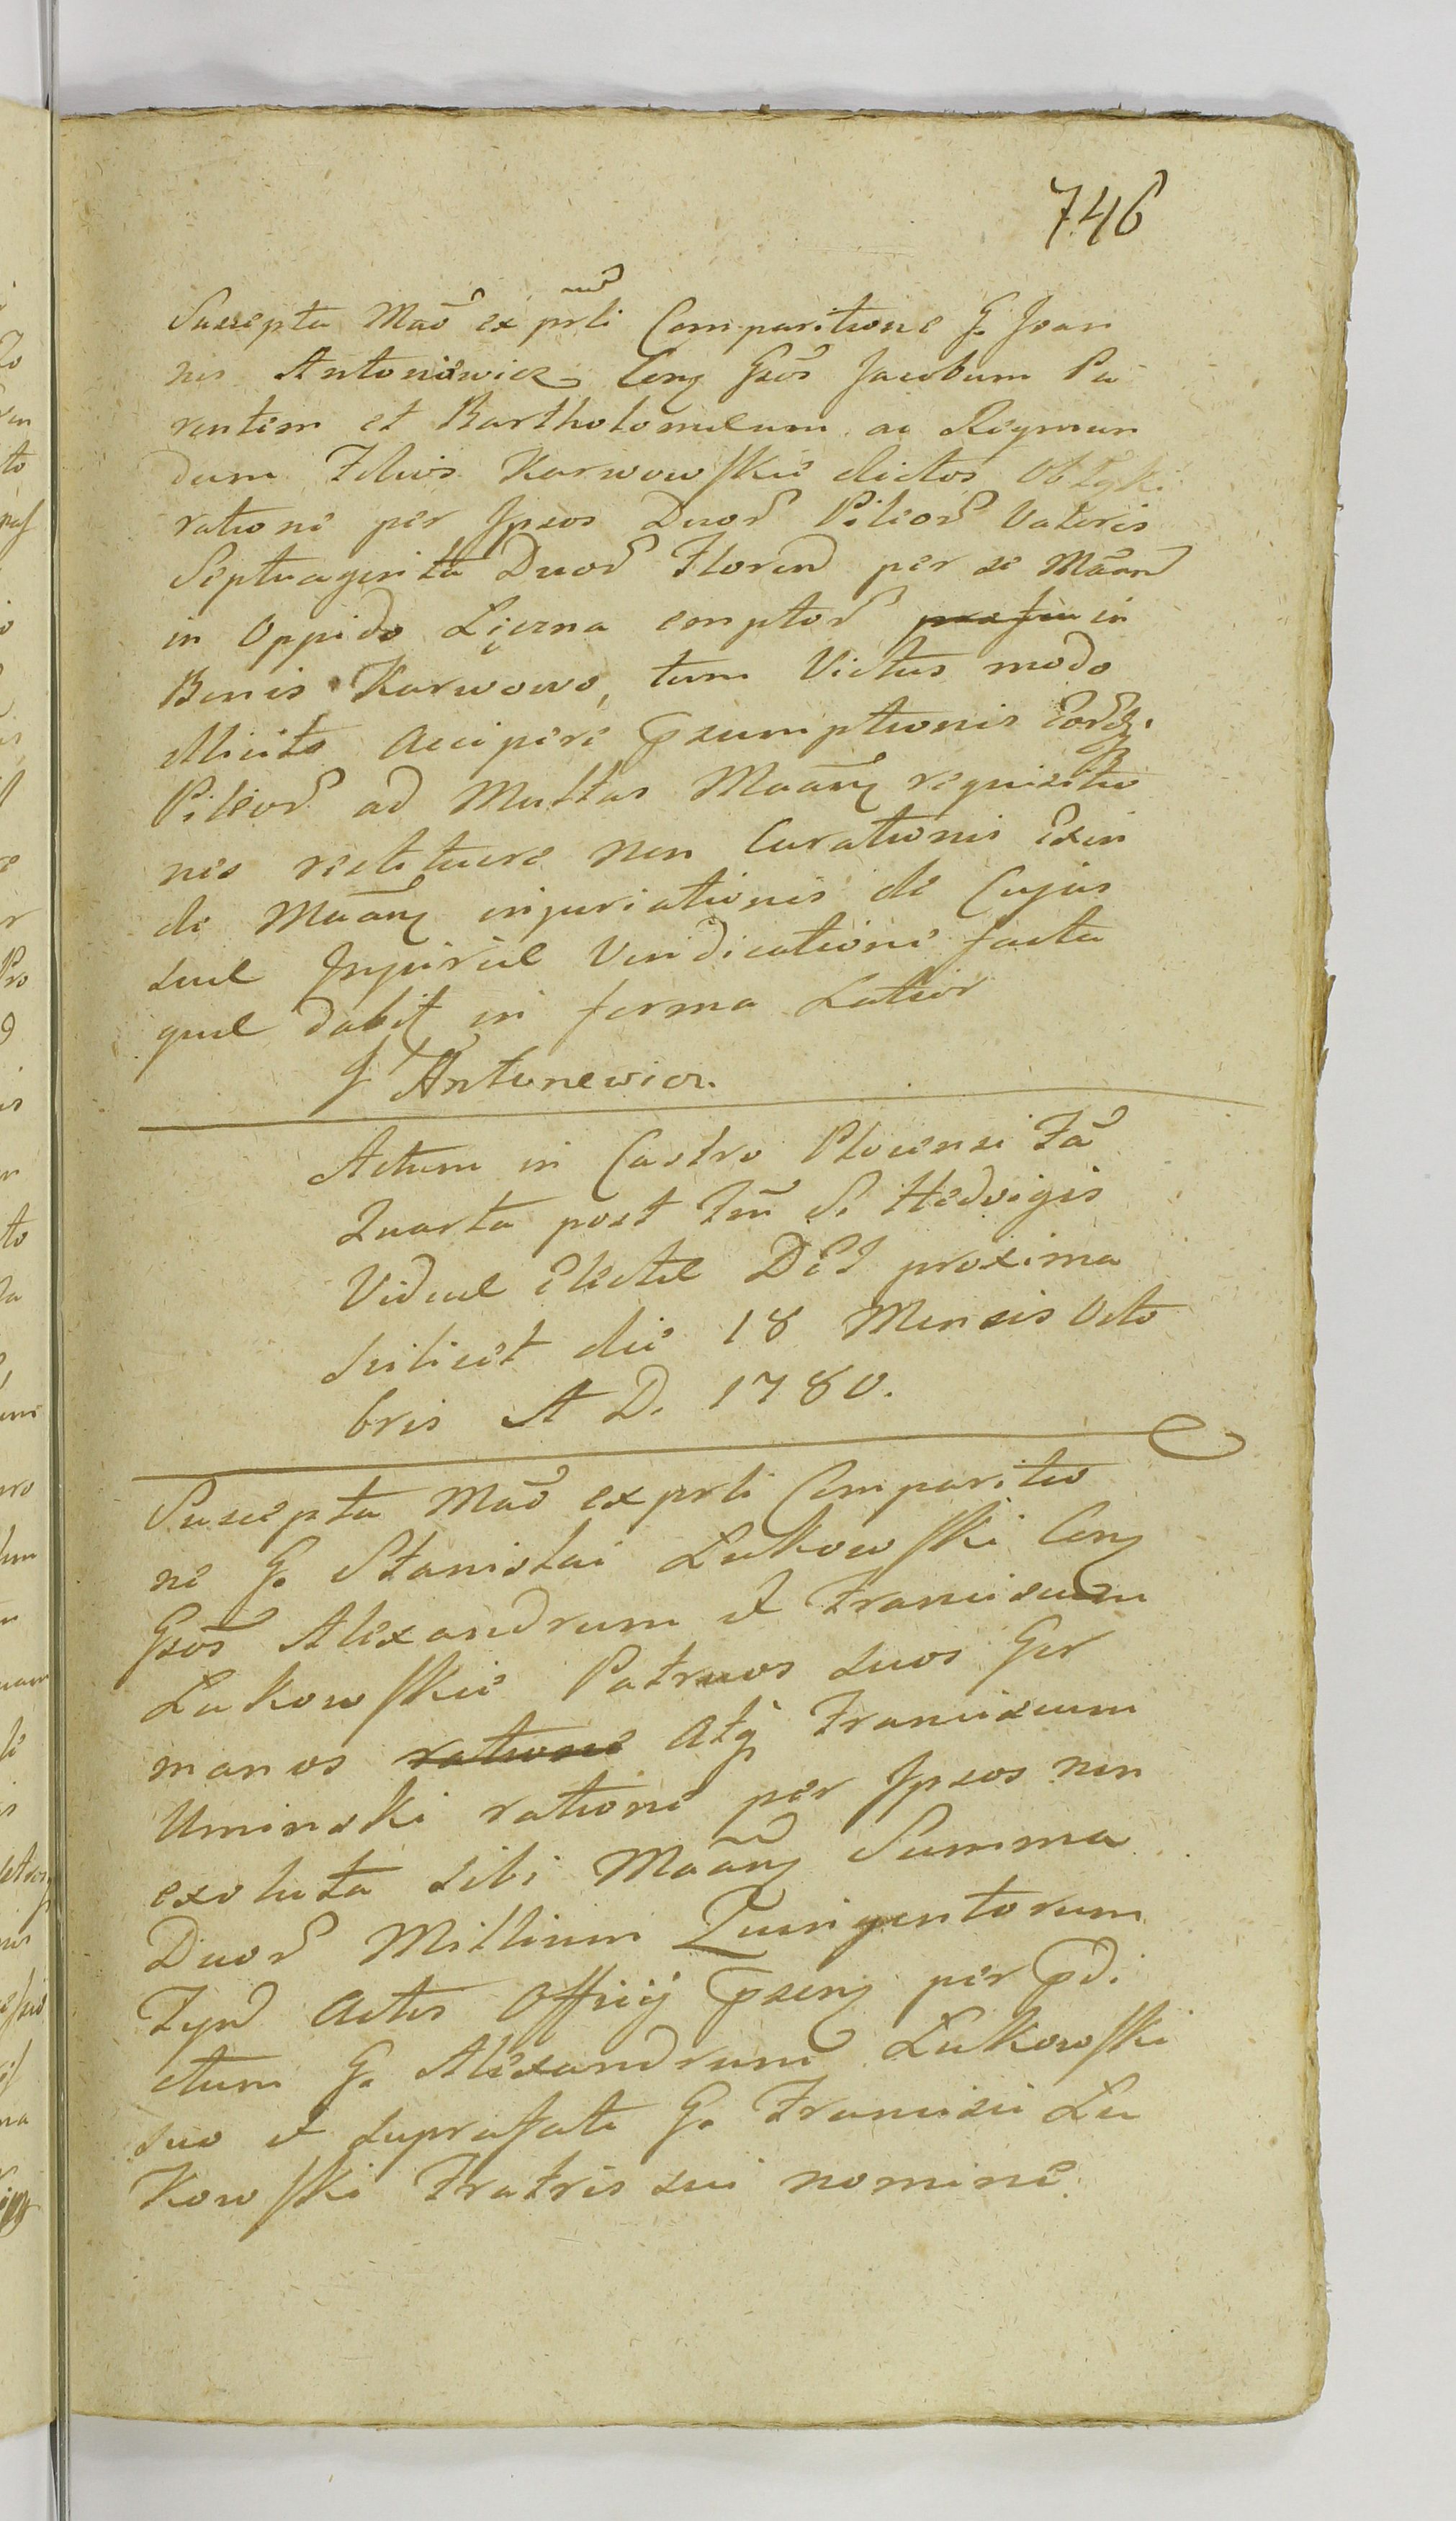 746
Suscepta Mãõ ex prli Comparitione G. Joan
nis Antoniewicz Con͂ Gsõs Jacobum Pa
rentem et Bartholomeum ac Reymun
dum Filios Karwowskie dictos
ratione per Ipsos Duor͂ Pileor͂ Valoris
Septuaginta Duor͂ Floren͂ per se Mãan͂
in Oppido Sięzna emptor͂ in
Bonis Karwowo, tum Victus modo
illicito accipere p͞sumptionis eor͂dq.
Pileor͂ ad Multas Mãan͂ requisitio
nes restituere non Curationis Exin
de Mãan͂ injuriationis de Cujus
suae Injuriae Vendicatione facta
quae dabit͂ in forma Latior
J Antonewicz.
Actum in Castro Plocensi Fã
Quarta post Fm͂ S. Hedvigis
Viduae Electae DEI proxima
scilicet die 18 Mensis Octo
bris A D. 1780.
Suscepta Mãõ ex prli Comparitio
ne G. Stanislai Lukowski Con͂
Gsõs Alexandrum et Franciscum
Lukowskie Patruos suos Ger
manos ratione atq; Franciscum
Uminski ratione per Ipsos non
exoluta sibi Mãan͂ Summa
Duor͂ Millium Quingentorum
Fpn͂ Actis Officij p͞sen͂ per p͞di
ctum G. Alexandrum Lukowski
suo et suprafati G. Francisci Lu
kowski Fratris sui nomine